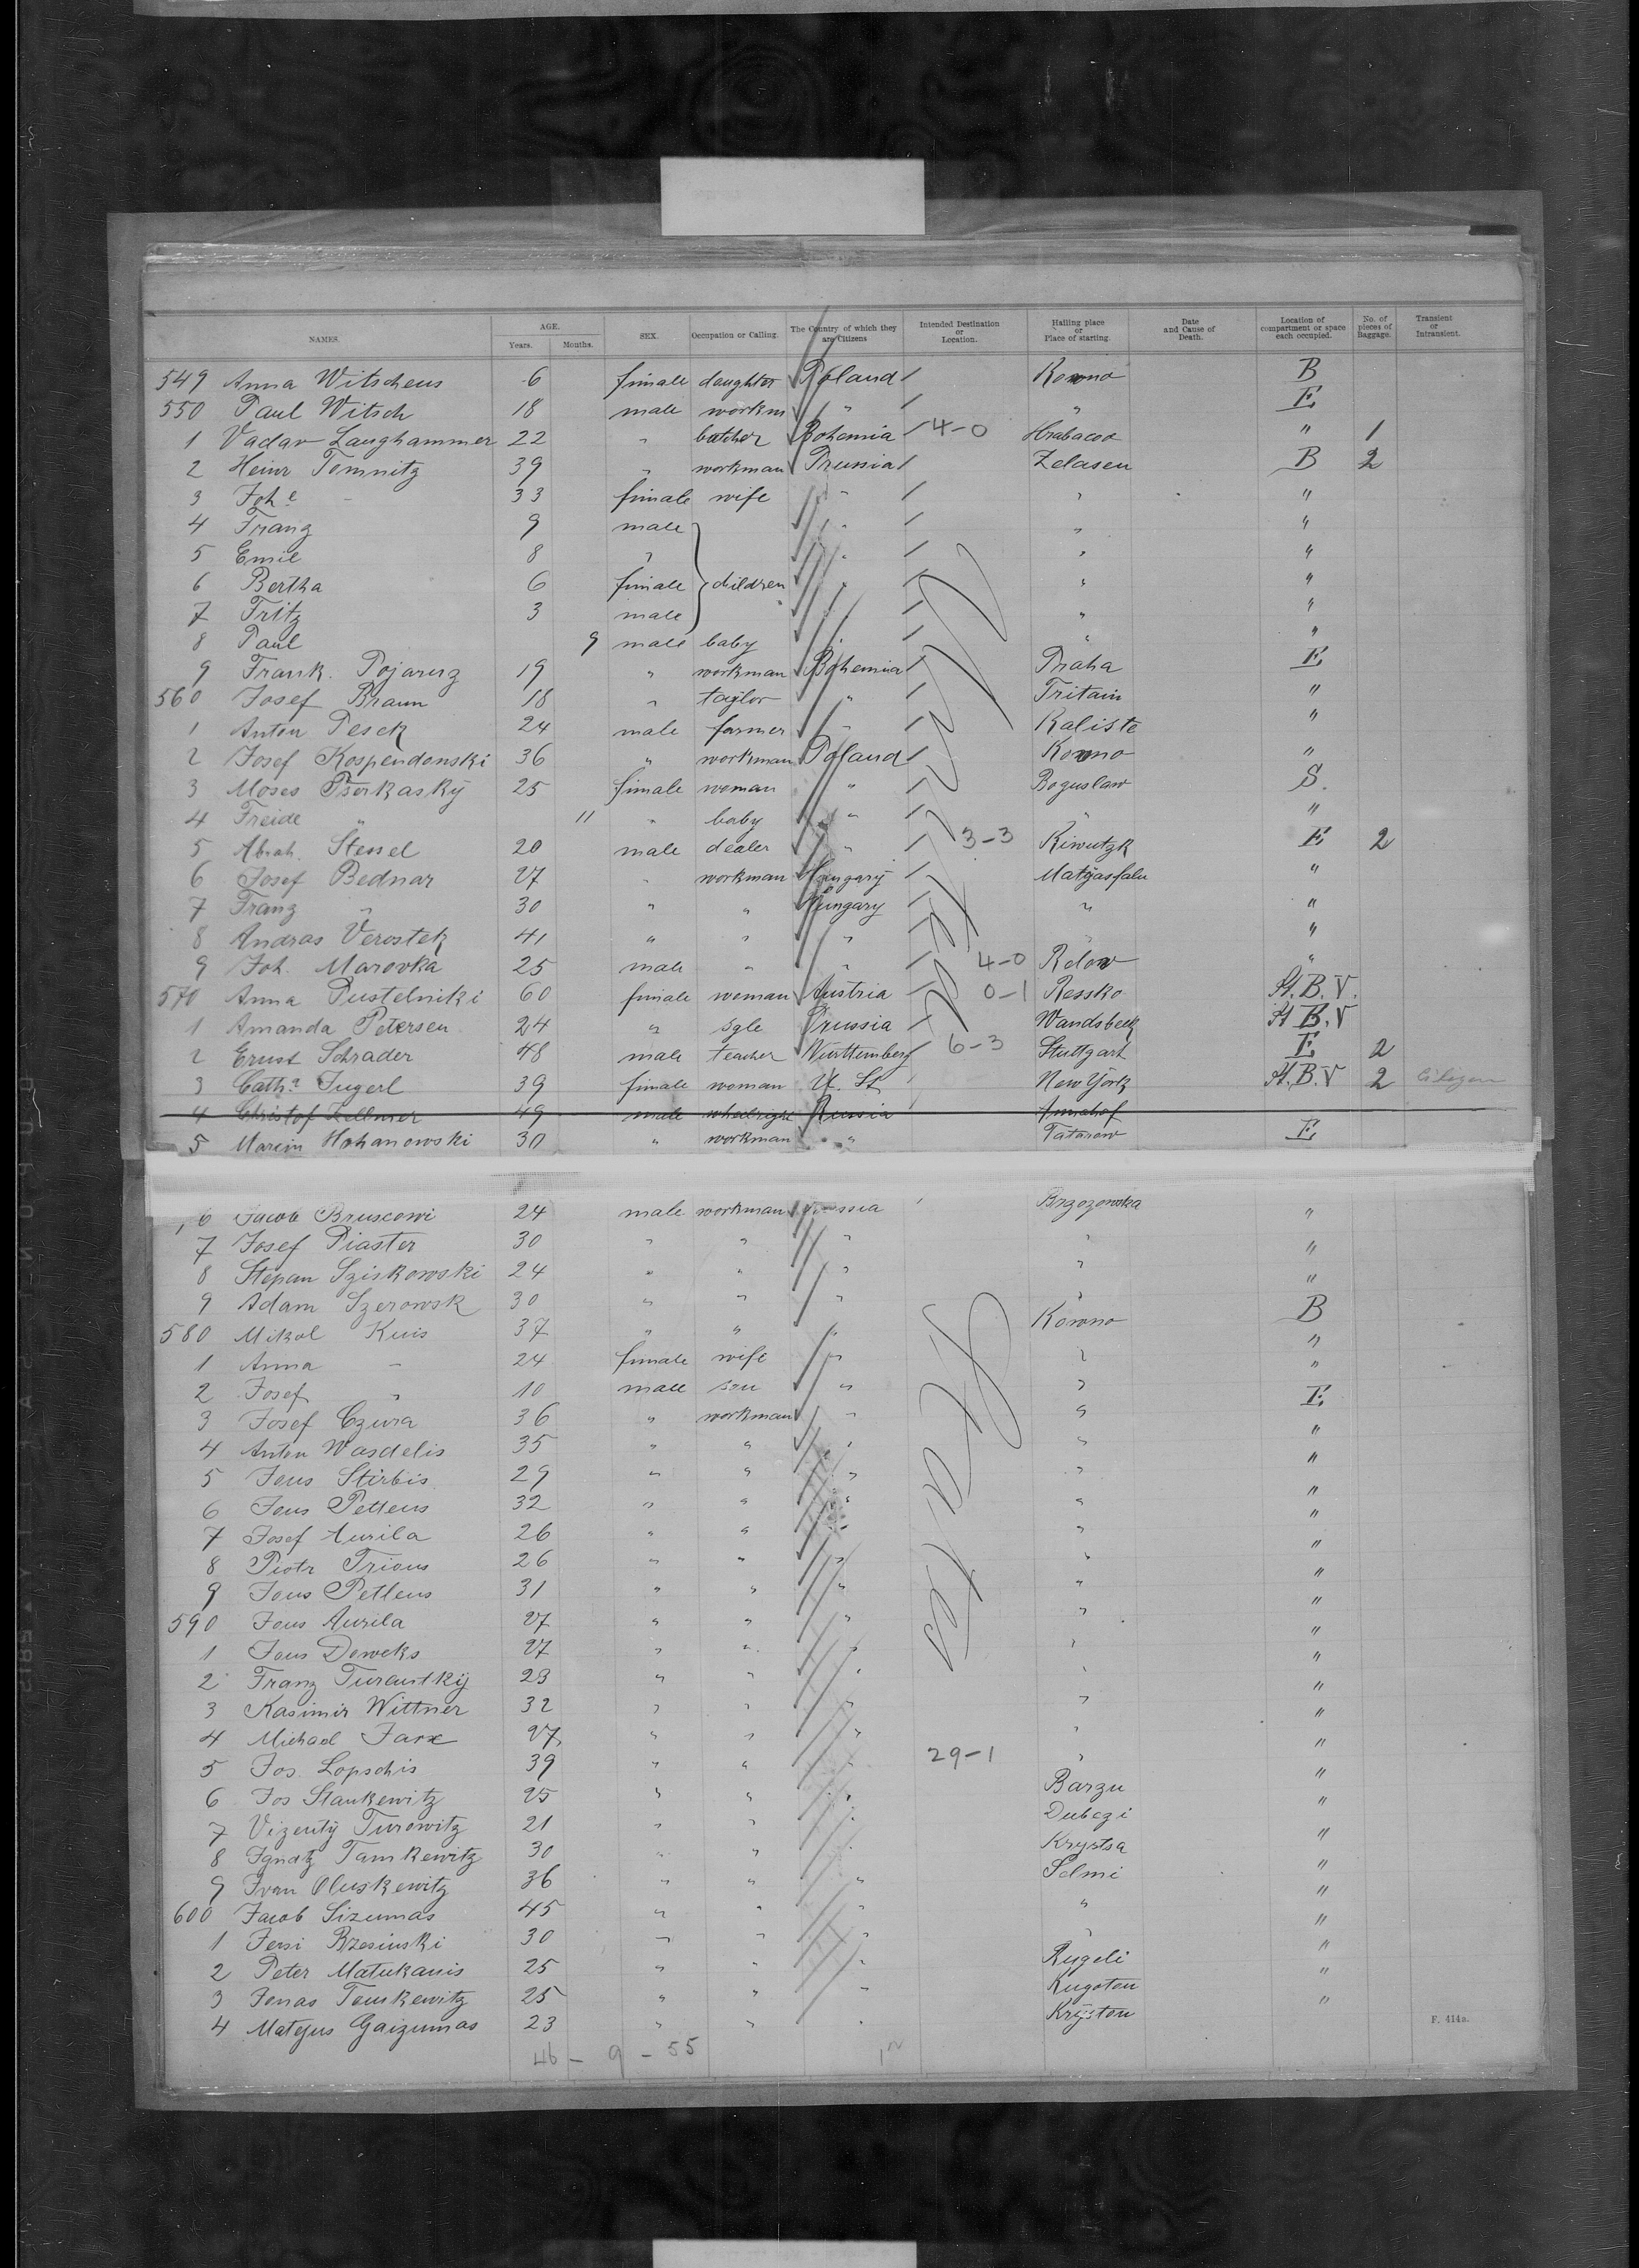 NAMES. AGE. SEX. Occupation or Calling. The Country of which they are Citizens Intended Destination or Location. Hailing place or Place of starting. Date and Cause of Death. Location of compartment or space each occupied. No. of pieces of Baggage. Transient or Intransient.
Years. Months.
549 Anna Witscheus 6 female daughter Poland Kowno B
550 Paul Witsch 18 male workm " " E
1 Vaclav Langhammer 22 " butcher Bohemia 4-0 Hrabacoa " 1
2 Heinr Tomnitz 39 " workman Prussia Zelasen B 2
3 Johe - 33 female wife " " "
4 Franz 9 male " " "
5 Emil 8 " " " "
6 Bertha 6 female children " " "
7 Fritz 3 male " " "
8 Paul 9 male baby " "
9 Frank. Pojarenz 19 " workman Bohemia Praha E
560 Josef Braun 18 " taylor " Tritain "
1 Anton Pesek 24 male farmer " Kaliste "
2 Josef Kospendonski 36 " workman Poland Kowno "
3 Moses Pserkasky 25 female woman " Boguslaw S.
4 Freide " 11 " baby " " "
5 Abrah. Stessel 20 male dealer " 3-3 Kiwutzk E 2
6 Josef Bednar 27 " workman Hungary Matyasfalu "
7 Franz " 30 " " Hungary " "
8 Andras Verostek 41 " " " "
9 Joh. Marovka 25 male " " 4-0 Rdow "
570 Anna Pustelniki 60 female woman Austria 0-1 Ressko St. B. V.
1 Amanda Petersen 24 " sgle Prussia Wandsbeek St B. V
2 Ernst Schrader 48 male teacher Württemberg 6-3 Stuttgart E 2
3 Catha Jugerl 39 female woman U. St New York St. B. V 2 Citizen
4 Christof Zellmer 49 male wheelright Russia Annahof
5 Marcin Hohanowski 30 " workman " Tatarow E
6 Jacob Bruscowi 24 male workman Russia Brzozowka "
7 Josef Piaster 30 " " " " "
8 Stepan Sziskowski 24 " " " " "
9 Adam Szerowsk 30 " " " "
580 Mikol Kuis 37 " " " Kowno B
1 Anna - 24 female wife " " "
2 Josef " 10 male son " " "
3 Josef Czura 36 " workman " " E
4 Anton Wasdelis 35 " " " " "
5 Jous Stirbis 29 " " " " "
6 Jous Petleus 32 " " " " "
7 Josef Aurila 26 " " " " "
8 Piotr Trious 26 " " " " "
9 Jous Petleus 31 " " " " "
590 Jous Aurila 27 " " " " "
1 Jous Doweks 27 " " " " "
2 Franz Turauskij 23 " " " " "
3 Kasimir Wittner 32 " " " " "
4 Michael Jarx 27 " " " " "
5 Jos. Lopschis 39 " " 29-1 " "
6 Jos Stankewitz 25 " " " Barzu "
7 Vizenty Turowitz 21 " " " Dubezi "
8 Ignatz Tamkewitz 30 " " Krystsa "
9 Ivan Oluskewitz 36 " " " Selmi "
600 Jacob Sizumas 45 " " " " "
1 Jersi Rzesinski 30 " " " " "
2 Peter Matukanis 25 " " " Rugeli "
3 Jonas Tomkewitz 25 " " " Kugoten "
4 Matejus Gaizumas 23 " " " Kryston
F. 414a.
46 - 9 - 55